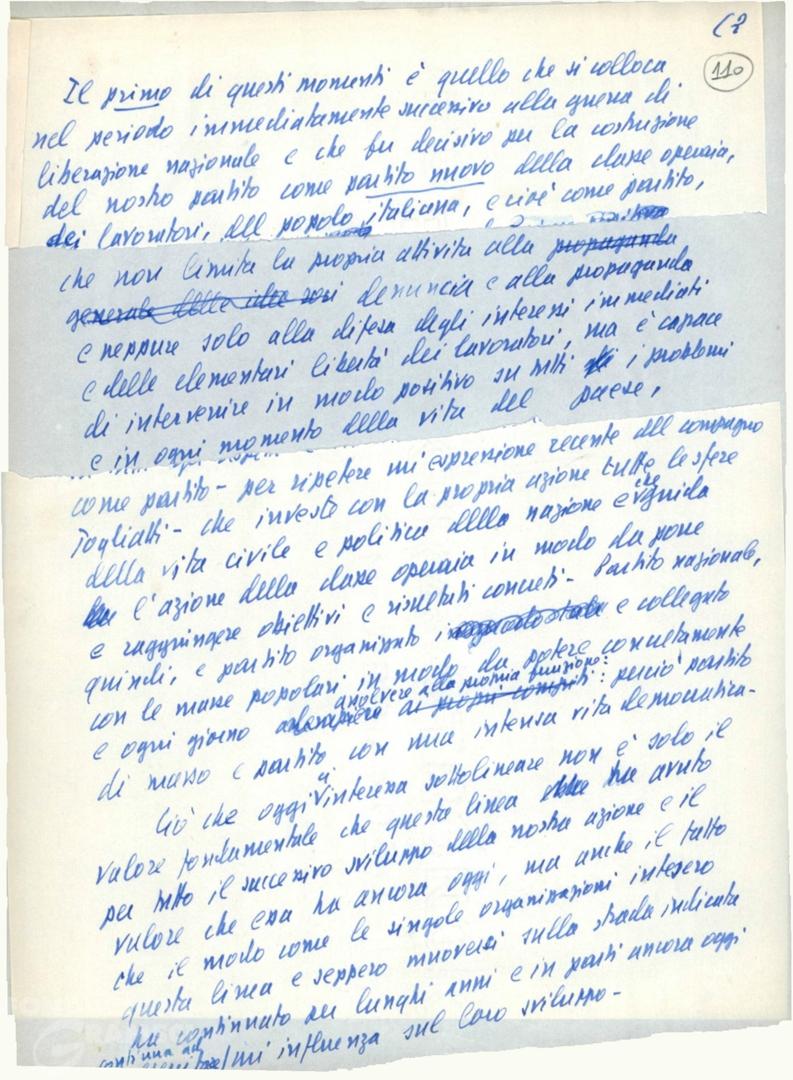 (2
110
Il primo di questi momenti è quello che si colloca
nel periodo immediatamente successivo alla guerra di
liberazione nazionale e che fu decisivo per la costruzione
del nostro partito come partito nuovo della classe operaia,
dei lavoratori, del popolo italiano, e cioè come partito,
che non limita la propria attività alla propaganda
generale delle idee soci denuncia e alla propaganda
e neppure solo alla difesa degli interessi immediati
e delle elementari libertà dei lavoratori, ma è capace
di intervenire in modo positivo su tutti i problemi
e in ogni momento della vita del paese,
come partito - per ripetere un'espressione recente del compagno
Togliatti - che investe con la propria azione tutte le sfere
della vita civile e politica della nazione e che guida
l'azione della classe operaia in modo da porre
e raggiungere obiettivi e risultati concreti - Partito nazionale,
quindi, e partito organizzato e collegato
con le masse popolari in modo da potere concretamente
e ogni giorno assolvere alla propria funzione: ai propri compiti: perciò partito
di massa e partito con una intensa vita democratica -
Ciò che oggi ci interessa sottolineare non è solo il
valore fondamentale che questa linea ha avuto
per tutto il successivo sviluppo della nostra azione e il
valore che essa ha ancora oggi, ma anche il fatto
che il modo come le singole organizzazioni intesero
questa linea e seppero muoversi sulla strada indicata
ha continuato per lunghi anni e in parti ancora oggi
continua ad esercitare un'influenza sul loro sviluppo -